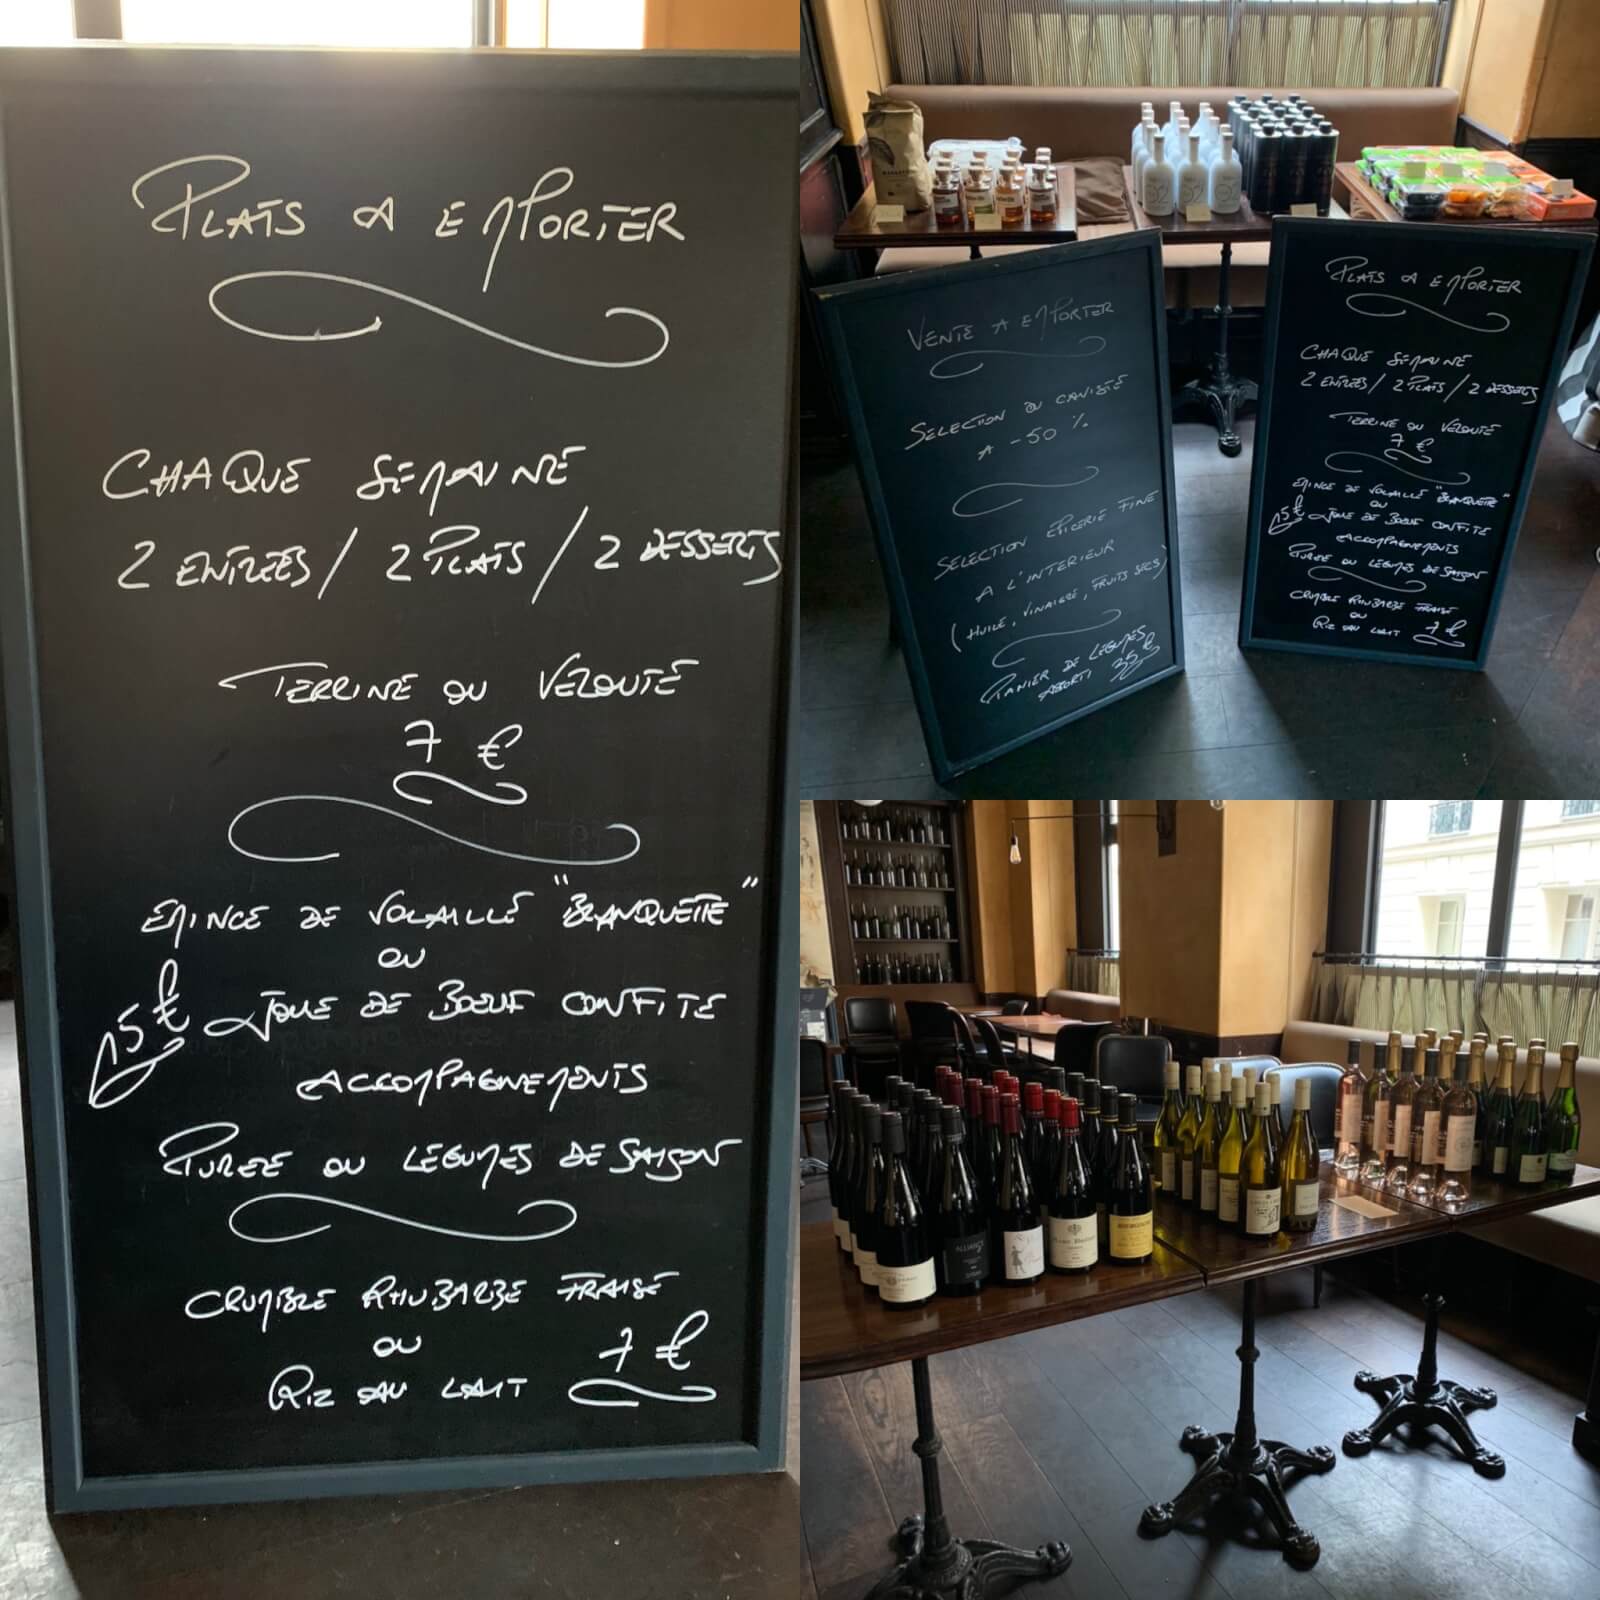 PLATS A EMPORTER
CHAQUE SEMAINE
2 ENTREES / 2 PLATS / 2 DESSERTS
TERRINE OU VELOUTÉ
7 €
EMINCE DE VOLAILLE "BLANQUETTE"
OU
15 € JOUE DE BOEUF CONFITE
ACCOMPAGNEMENTS
PUREE OU LEGUMES DE SAISON
CRUMBLE RHUBARBE FRAISE
OU
RIZ AU LAIT 7 €
VENTE A EMPORTER
SELECTION DU CAVISTE
A -50 %
SELECTION EPICERIE FINE
A L'INTERIEUR
(HUILE, VINAIGRE, FRUITS SECS)
PANIER DE LEGUMES
ASSORTI 35 €
PLATS A EMPORTER
CHAQUE SEMAINE
2 ENTREES / 2 PLATS / 2 DESSERTS
TERRINE OU VELOUTÉ
7 €
EMINCE DE VOLAILLE "BLANQUETTE"
OU
15 € JOUE DE BOEUF CONFITE
ACCOMPAGNEMENTS
PUREE OU LEGUMES DE SAISON
CRUMBLE RHUBARBE FRAISE
OU
RIZ AU LAIT 7 €
ALLIANCE